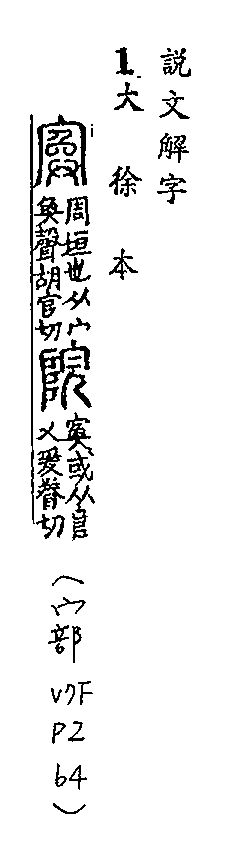 説文解字
1.大徐本
寏周垣也从宀奐聲胡官切院寏或从𨸏又爰眷切
(宀部 V7F P2 64)